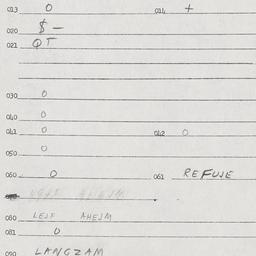 013 0 014 +
020 $ -
021 QT
030 0
040 0
041 0 042 0
050 0
060 0 061 REFUJE
080 LEJF AHEJM
081 0
090 LANGZAM